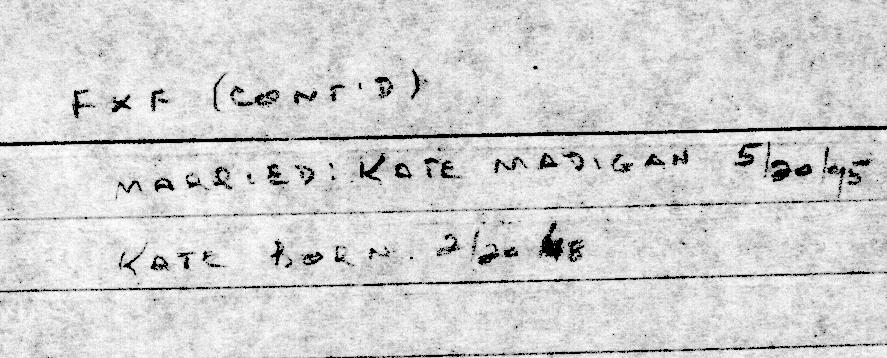 FXF (CONT'D)
MARRIED: KATE MADIGAN 5/20/95
KATE BORN. 2/20/48